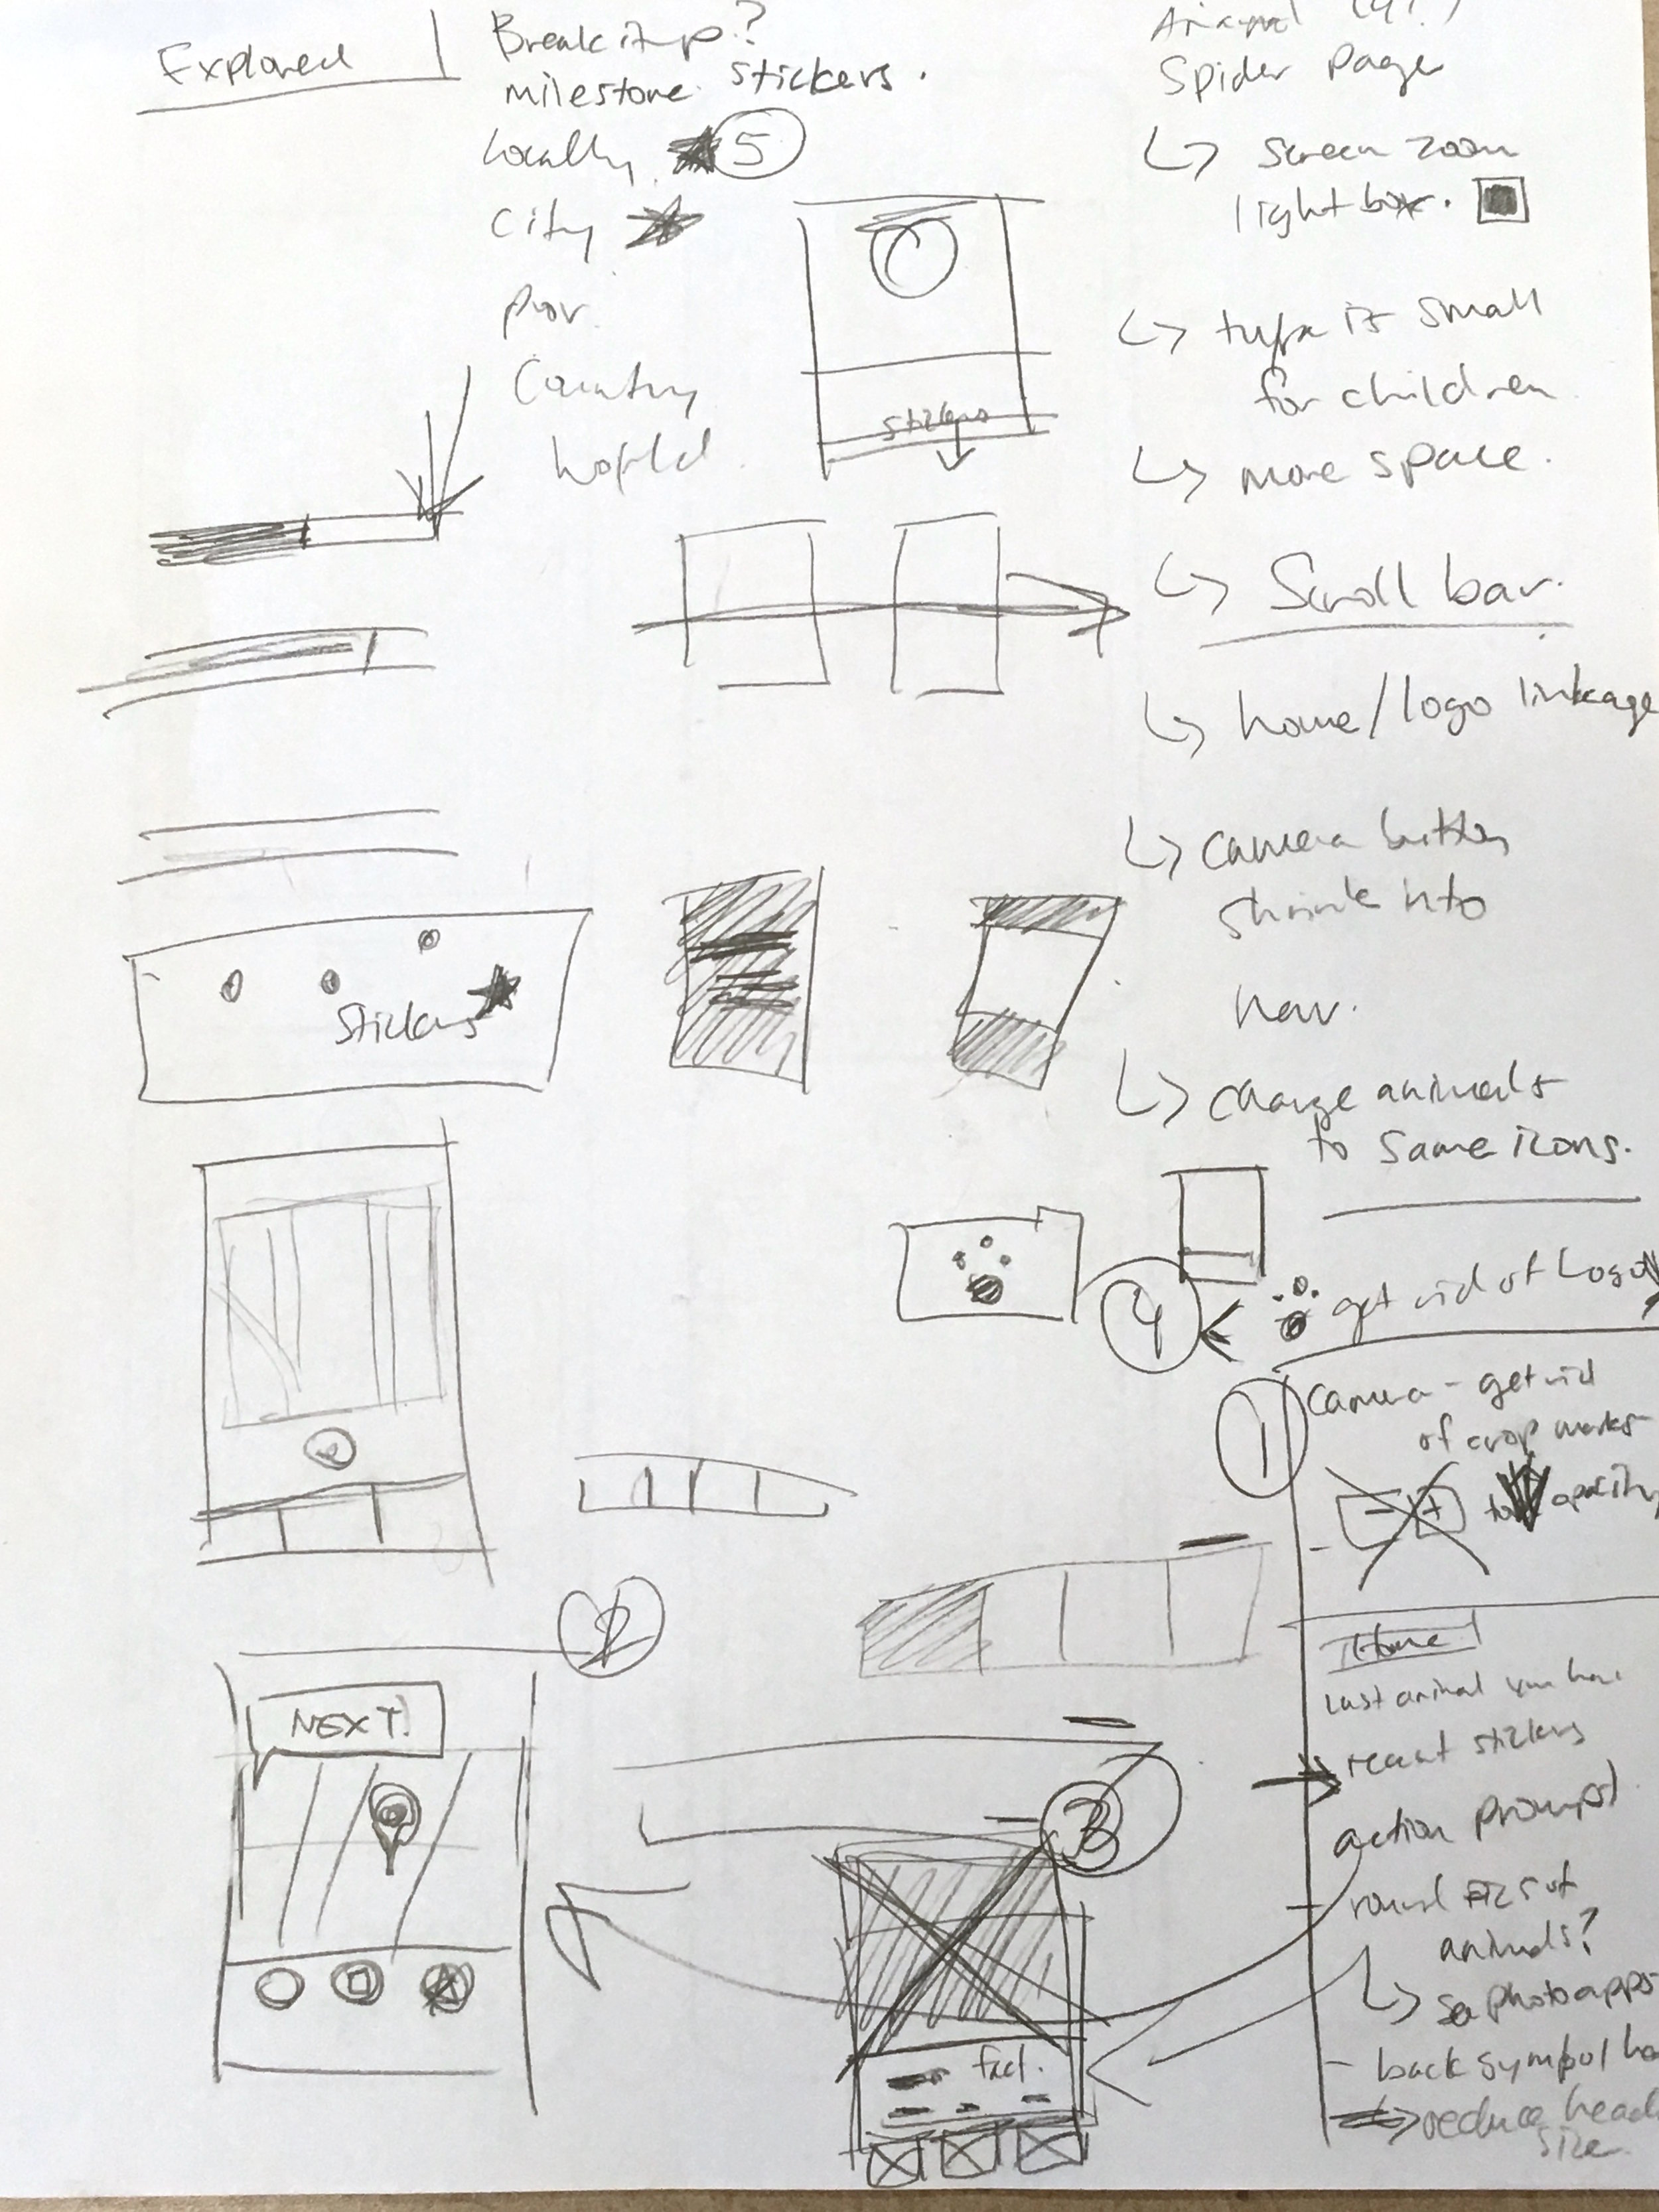 Explored
Break it up?
milestone stickers.
Locally 5
City
prov.
Country
World.
stickers
Stickers
Spider page
screen zoom
light box.
type is small
for children
more space.
Scroll bar.
home/logo linkage
camera button
shrink into
nav.
change animals
to same icons.
4
get rid of Logo
1
Camera - get rid
of crop marks
- +
opacity
2
Home
Last animal you
recent stickers
action prompt
3
NEXT!
round pics of
animals?
see photo apps
fact.
- back symbol
reduce head
size